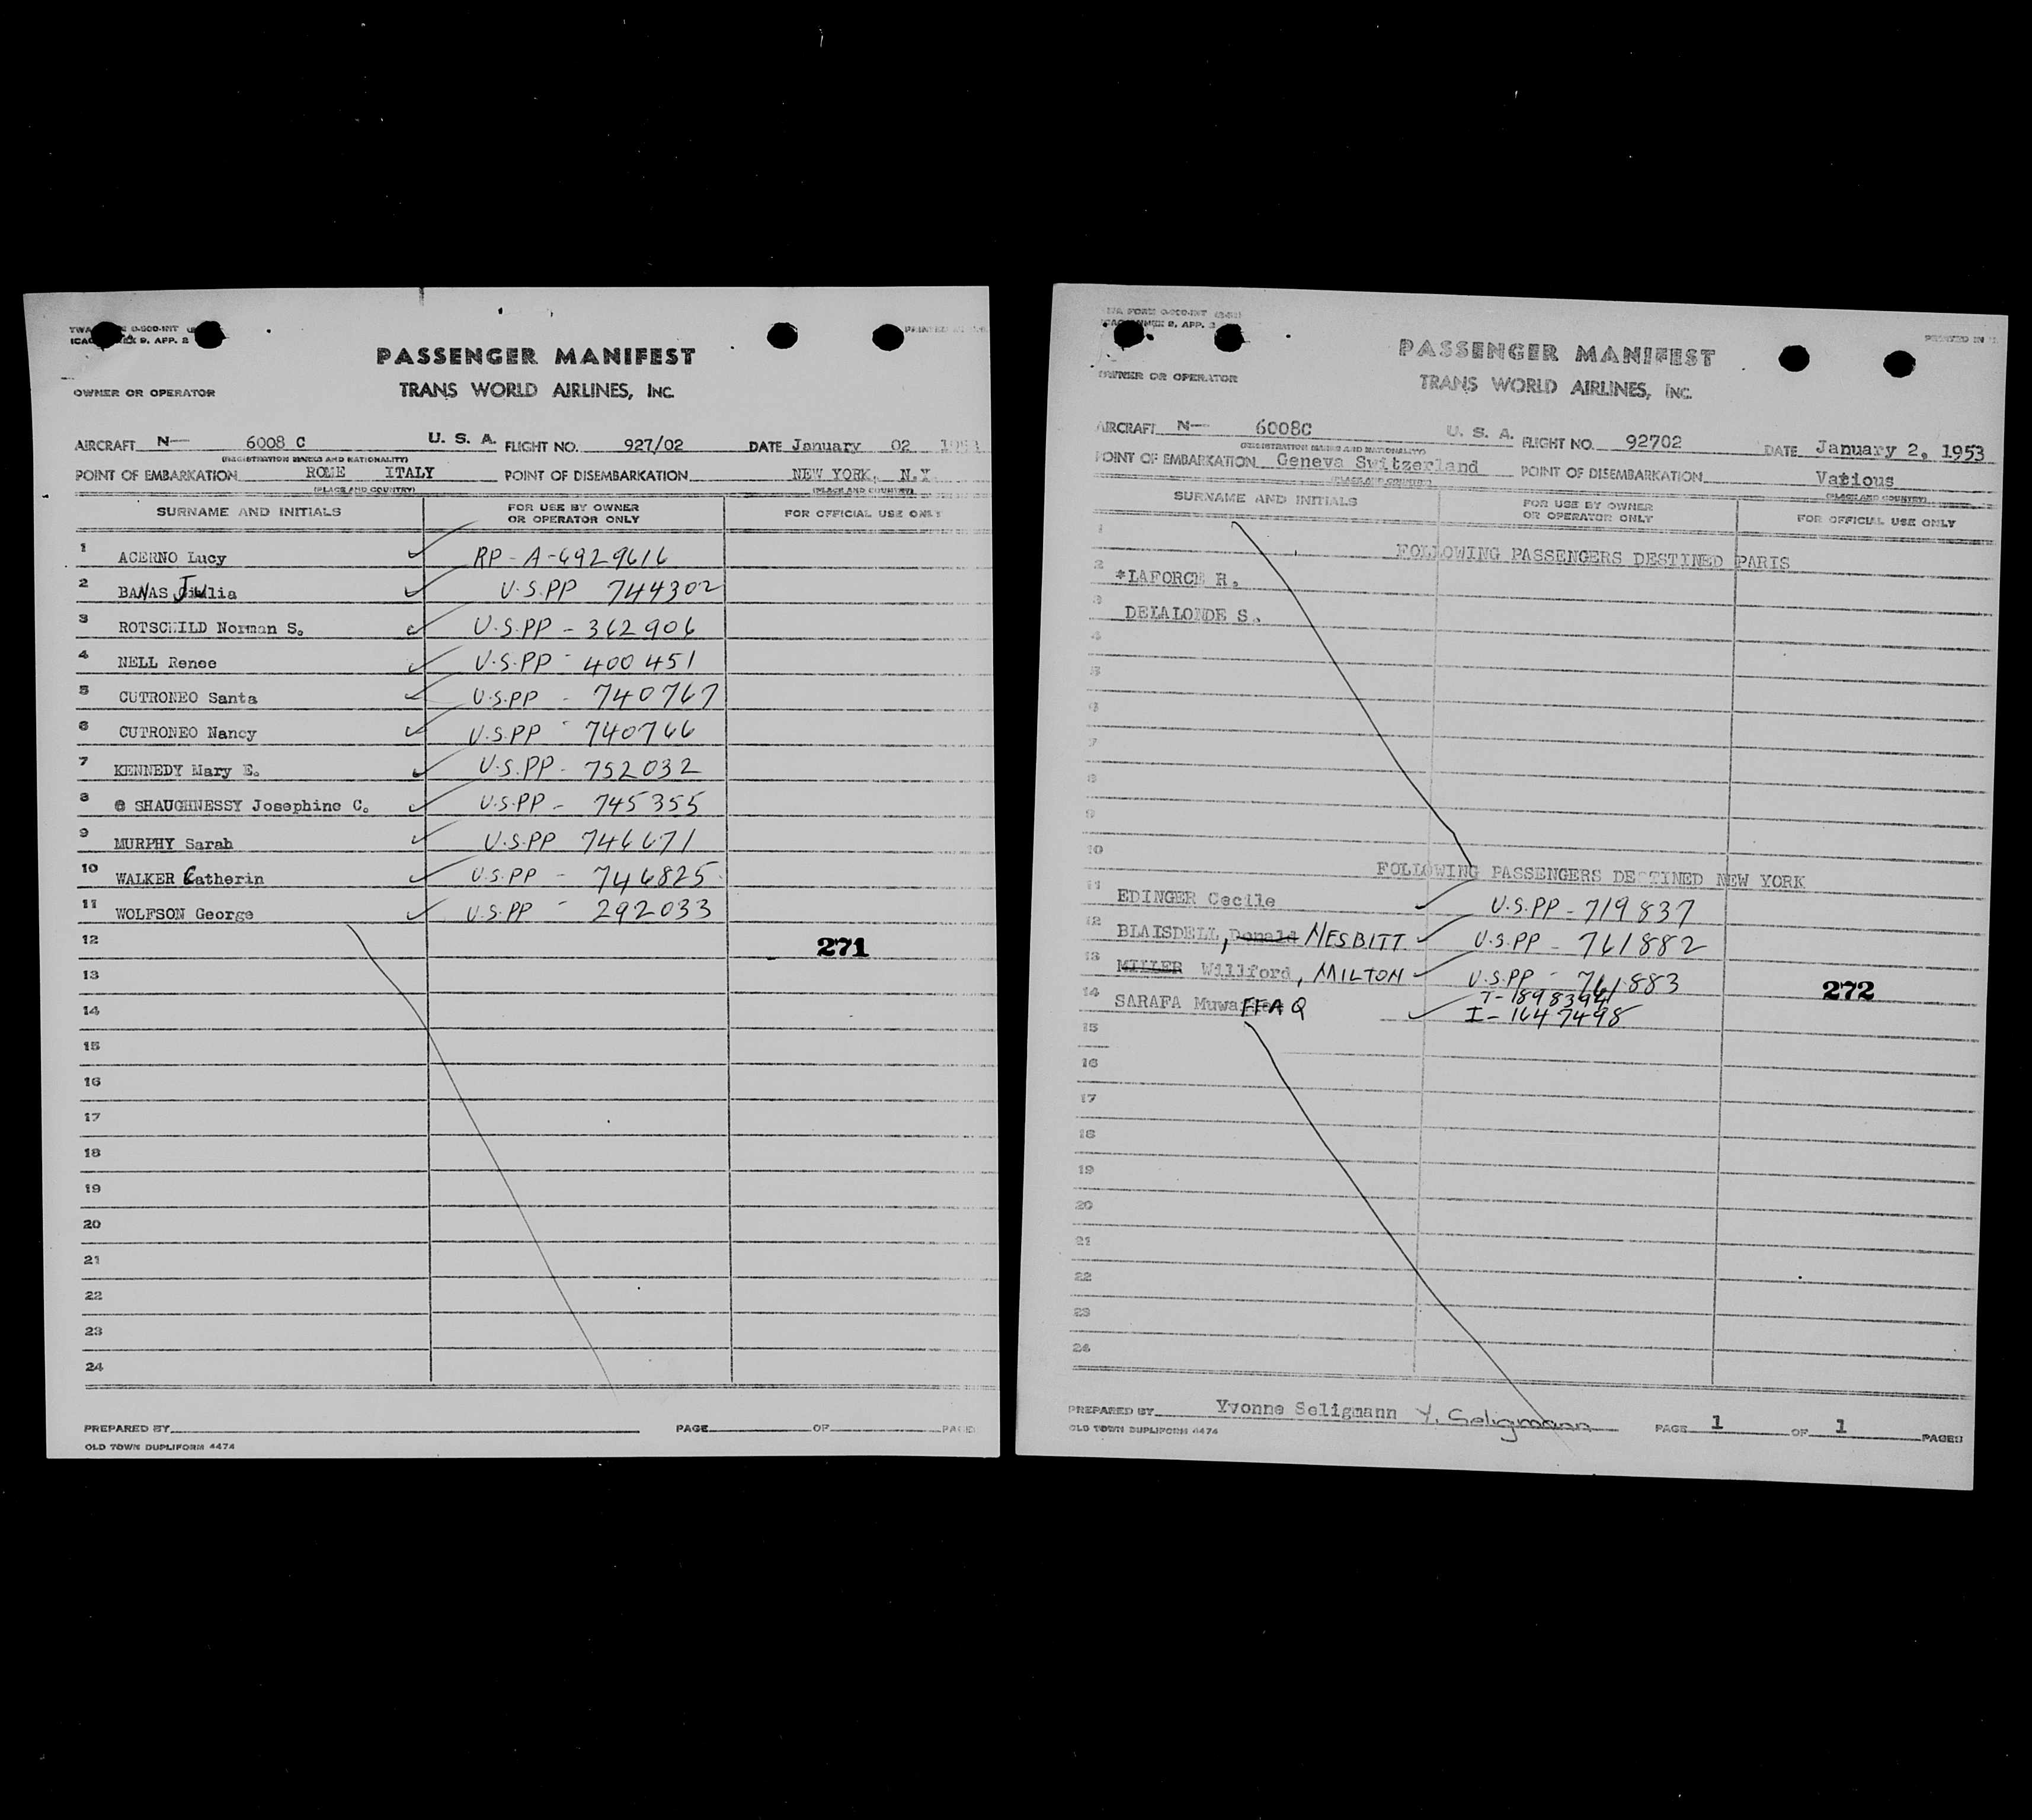 PASSENGER MANIFEST
TRANS WORLD AIRLINES, INC.
OWNER OR OPERATOR
AIRCRAFT N— 6008 C U. S. A. FLIGHT NO. 927/02 DATE January 02 1953
(REGISTRATION MARKS AND NATIONALITY)
POINT OF EMBARKATION ROME ITALY POINT OF DISEMBARKATION NEW YORK, N.Y
(PLACE AND COUNTRY) (PLACE AND COUNTRY)
SURNAME AND INITIALS FOR USE BY OWNER OR OPERATOR ONLY FOR OFFICIAL USE ONLY
1 ACERNO Lucy RP-A-6929616
2 BANAS Julia U.S.PP 744302
3 ROTSCHILD Norman S. U.S.PP - 362906
4 NELL Renee U.S.PP - 400451
5 CUTRONEO Santa U.S.PP - 740767
6 CUTRONEO Nancy U.S.PP - 740766
7 KENNEDY Mary E. U.S.PP - 752032
8 @ SHAUGHNESSY Josephine C. U.S.PP - 745355
9 MURPHY Sarah U.S.PP 746671
10 WALKER Catherin U.S.PP - 746825
11 WOLFSON George U.S.PP - 292033
12 271
13
14
15
16
17
18
19
20
21
22
23
24
PREPARED BY PAGE OF PAGES
OLD TOWN DUPLIFORM 4474
TWA FORM
ICAO ANNEX 9, APP. 2
PRINTED IN
PASSENGER MANIFEST
TRANS WORLD AIRLINES, INC.
OWNER OR OPERATOR
AIRCRAFT N— 6008C U. S. A. FLIGHT NO. 92702 DATE January 2, 1953
(REGISTRATION MARKS AND NATIONALITY)
POINT OF EMBARKATION Geneva Switzerland POINT OF DISEMBARKATION Various
(PLACE AND COUNTRY) (PLACE AND COUNTRY)
SURNAME AND INITIALS FOR USE BY OWNER OR OPERATOR ONLY FOR OFFICIAL USE ONLY
1 FOLLOWING PASSENGERS DESTINED PARIS
2 *LAFORCE R.
3 DELALONDE S.
4
5
6
7
8
9
10 FOLLOWING PASSENGERS DESTINED NEW YORK
11 EDINGER Cecile U.S.PP - 719837
12 BLAISDELL, Donald NESBITT U.S.PP - 761882
13 MILLER Willford, MILTON U.S.PP - 761883 272
14 SARAFA MuwaFFAQ T-1898394
I-1647498
15
16
17
18
19
20
21
22
23
24
PREPARED BY Yvonne Seligmann Y. Seligmann PAGE 1 OF 1 PAGES
OLD TOWN DUPLIFORM 4474